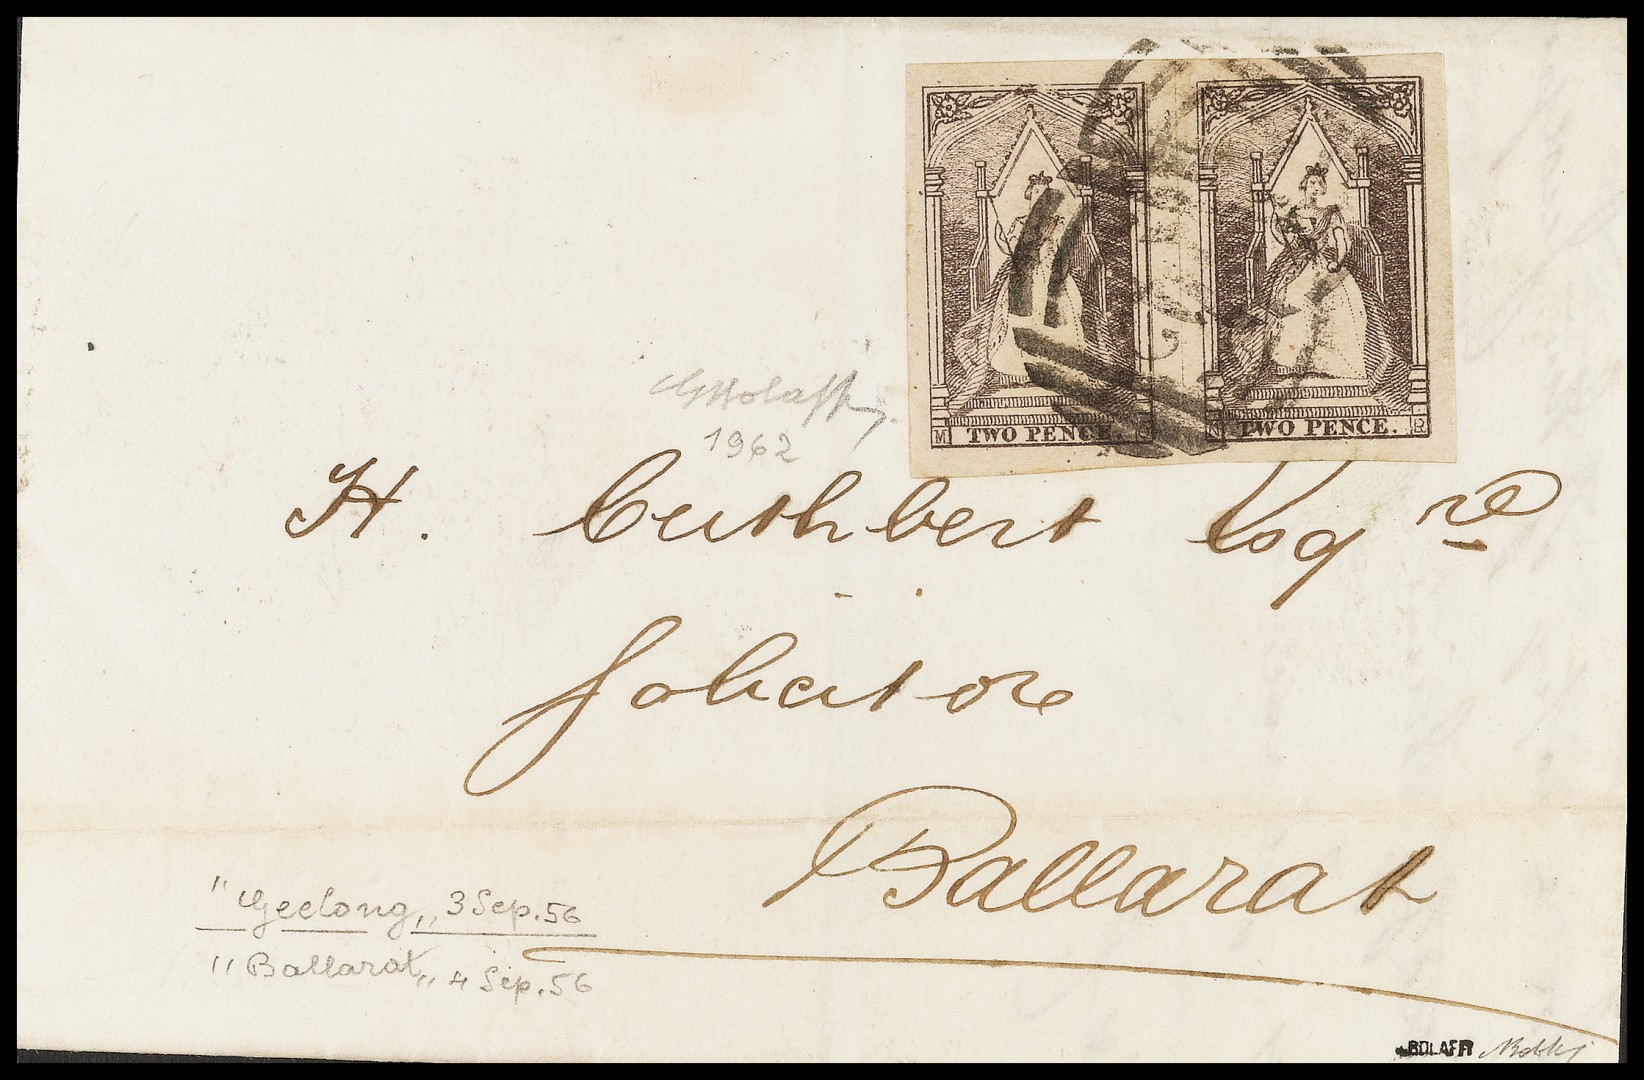 M TWO PENCE. TWO PENCE. R
1962
H. Cuthbert Esqre
Solicitor
Ballarat
"Geelong„ 3 Sep. 56
"Ballarat„ 4 Sep. 56
BOLAFFI